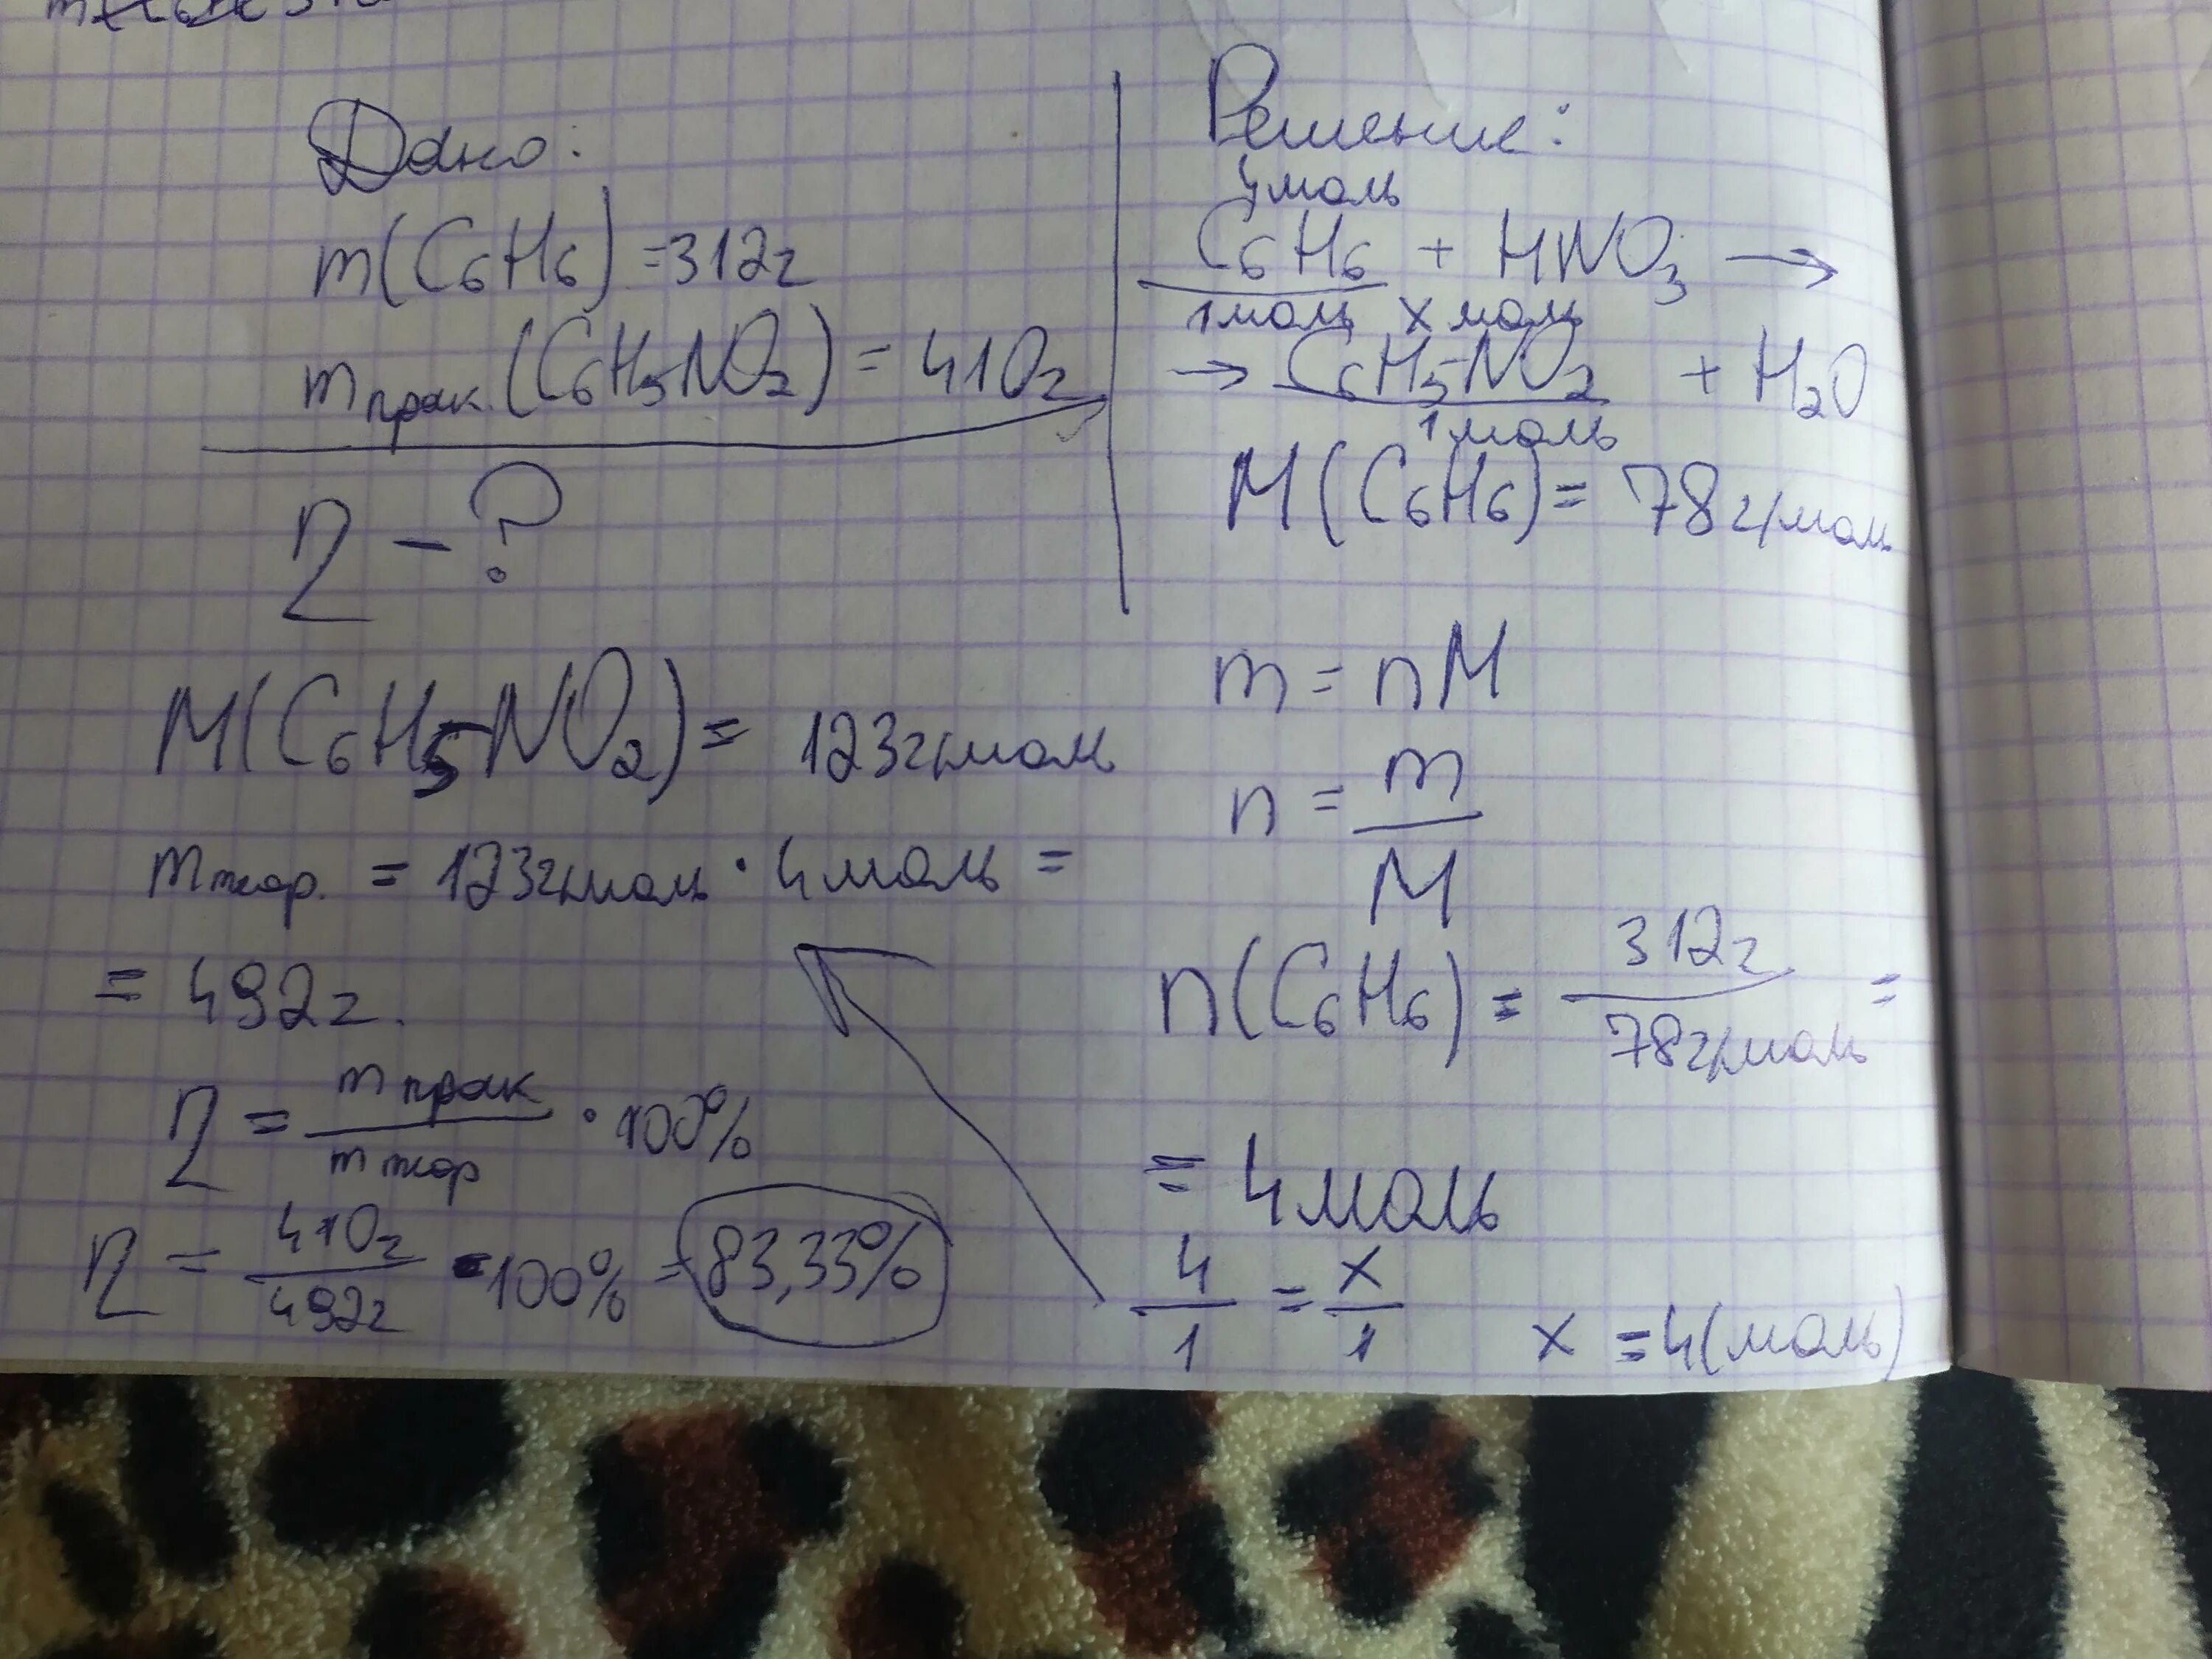 Дано:
m(C₆H₆) = 312г
mпрак.(C₆H₅NO₂) = 410г
η - ?
Решение:
4моль
C₆H₆ + HNO₃ →
1моль x моль
→ C₆H₅NO₂ + H₂O
1моль
M(C₆H₆) = 78г/моль
m = nM
n = m/M
n(C₆H₆) = 312г/78г/моль =
= 4моль
4/1 = x/1 x = 4(моль)
M(C₆H₅NO₂) = 123г/моль
mтеор. = 123г/моль · 4моль =
= 492г.
η = mпрак/mтеор · 100%
η = 410г/492г · 100% = 83,33%